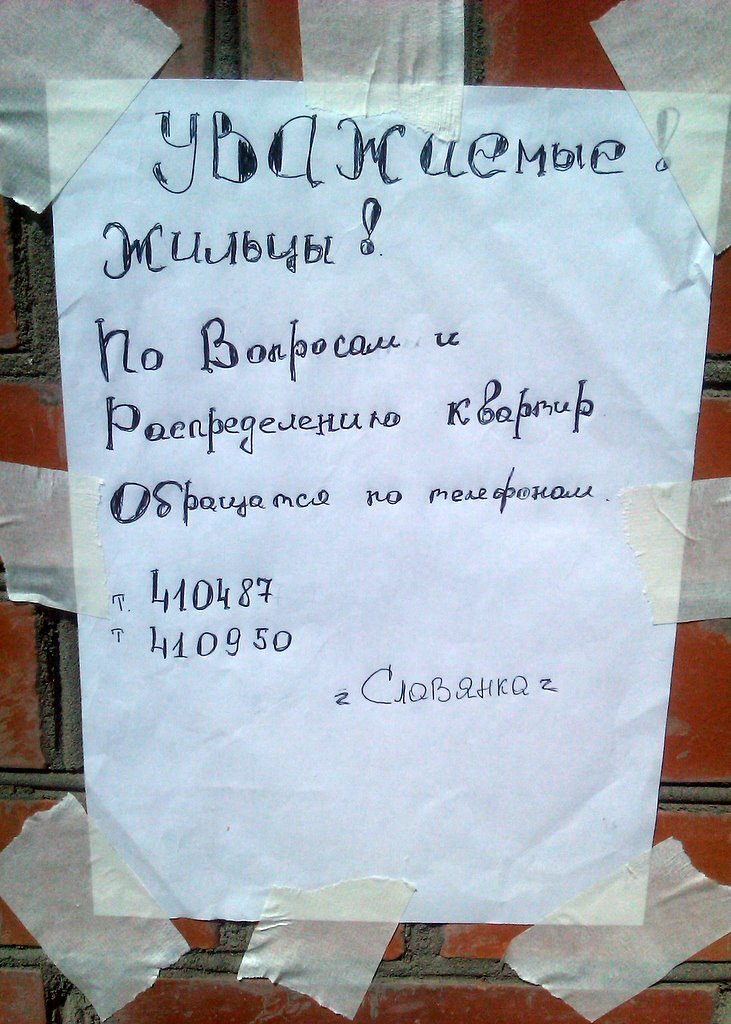 Уважаемые!
Жильцы!
По Вопросам и
Распределению квартир
Обращатся по телефонам.
т. 410487
т 410950
"Славянка"